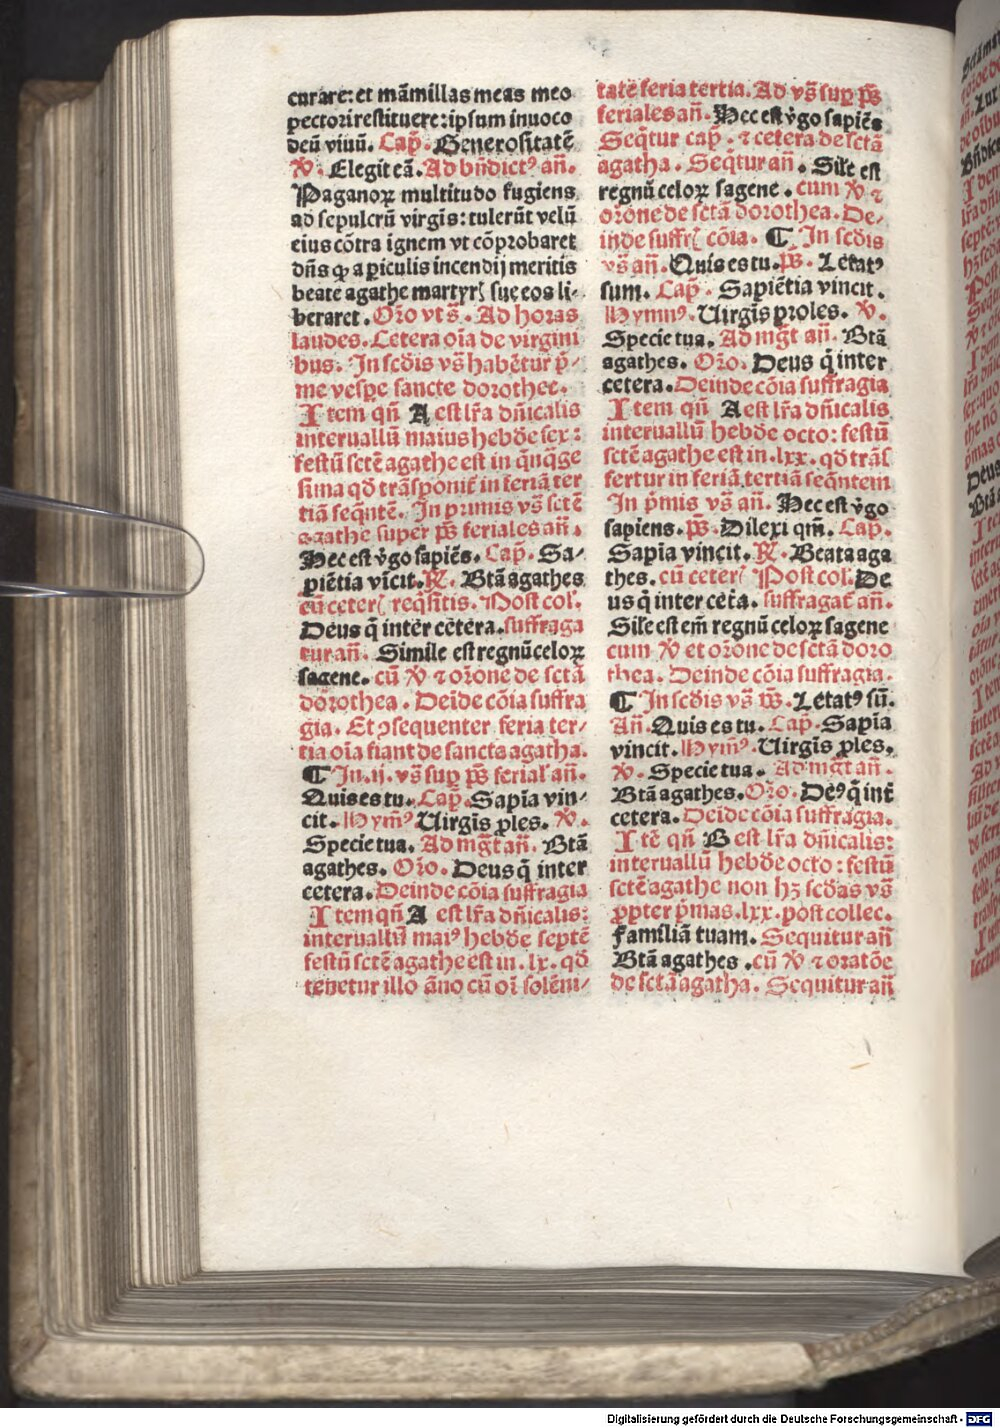 curare: et mãmillas meas meo
pectori restituere: ipsum inuoco
deũ viuũ. Cap̃. Generositatẽ
℣. Elegit eã. Ad bñdictꝰ añ.
Paganoꝝ multitudo fugiens
ad sepulcrũ virgĩs: tulerũt velũ
eius cõtra ignem vt cõprobaret
dñs ꝙ a ꝑiculis incendij meritis
beate agathe martyrꝭ sue eos li-
beraret. Orõ vt s̃. Ad horas
laudes. Cetera oĩa de virgini
bus. In scďis vs̃ habẽtur p̃-
me vesꝑe sancte dorothee.
Item qñ A est lr̃a dñicalis
interuallũ maius hebďe sex:
festũ sctẽ agathe est in q̃nq̃ge
sima qď trãsponit̃ in feriã ter
tiã seq̃ntẽ. In primis vs̃ sctẽ
agathe super p̃s feriales añ.
Hec est v̾go sapiẽs. Cap̃. Sa-
piẽtia vĩcit. ℟. Btã agathes
cũ ceterꝭ req̃sitis. Post col.
Deus q̃ inter cẽtera. suffraga
tur añ. Simile est regnũ celoꝝ
sagene. cũ ℣ ⁊ orõne de sctã
dorothea. Deĩde cõia suffra
gia. Et ꝯsequenter feria ter-
tia oĩa fiant de sancta agatha.
¶ In .ij. vs̃ suꝑ p̃s ferial' añ.
Quis es tu. Cap̃. Sapĩa vin-
cit. Hymꝰ Uirgĩs ꝓles. ℣.
Specie tua. Ad mg̃t añ. Btã
agathes. Orõ. Deus q̃ inter
cetera. Deinde cõia suffragia
Item qñ A est lr̃a dñicalis:
interuallũ maiꝰ hebďe septẽ
festũ sctẽ agathe est in .lx. qď
tenetur illo ãno cũ oĩ solẽni-
tatẽ feria tertia. Ad vs̃ suꝑ p̃s
feriales añ. Hec est v̾go sapiẽs
Seq̃tur cap̃. ⁊ cetera de sctã
agatha. Seq̃tur añ. Sile est
regnũ celoꝝ sagene. cum ℣ ⁊
orõne de sctã dorothea. De-
inde suffrꝭ cõia. ¶ In scďis
vs̃ añ. Quis es tu. p̃s. Letatꝰ
sum. Cap̃. Sapiẽtia vincit.
Hymnꝰ. Uirgĩs proles. ℣.
Specie tua. Ad mg̃t añ. Btã
agathes. Orõ. Deus q̃ inter
cetera. Deinde cõia suffragia
Item qñ A est lr̃a dñicalis
interuallũ hebďe octo: festũ
sctẽ agathe est in .lxx. qď trãs
fertur in feriã tertiã seq̃ntem
In p̃mis vs̃ añ. Hec est v̾go
sapiens. p̃s. Dilexi qm̃. Cap̃.
Sapĩa vincit. ℟. Beata aga
thes. cũ ceterꝭ Post col. De
us q̃ inter ceťa. suffragat̃ añ.
Sile est em̃ regnũ celoꝝ sagene
cum ℣ et orõne de sctã doro
thea. Deinde cõia suffragia.
¶ In scďis vs̃ p̃s. Letatꝰ sũ.
Añ. Quis es tu. Cap̃. Sapĩa
vincit. Hymꝰ. Uirgĩs ꝓles.
℣. Specie tua. Ad mg̃t añ.
Btã agathes. Orõ. Deꝰ q̃ int̃
cetera. Deĩde cõia suffragia.
Itẽ qñ B est lr̃a dñicalis:
interuallũ hebďe octo: festũ
sctẽ agathe non hꝫ scďas vs̃
ꝓpter p̃mas .lxx. post collec.
Familiã tuam. Sequitur añ
Btã agathes. cũ ℣ ⁊ oratõe
de sctã agatha. Sequitur añ
Digitalisierung gefördert durch die Deutsche Forschungsgemeinschaft - DFG